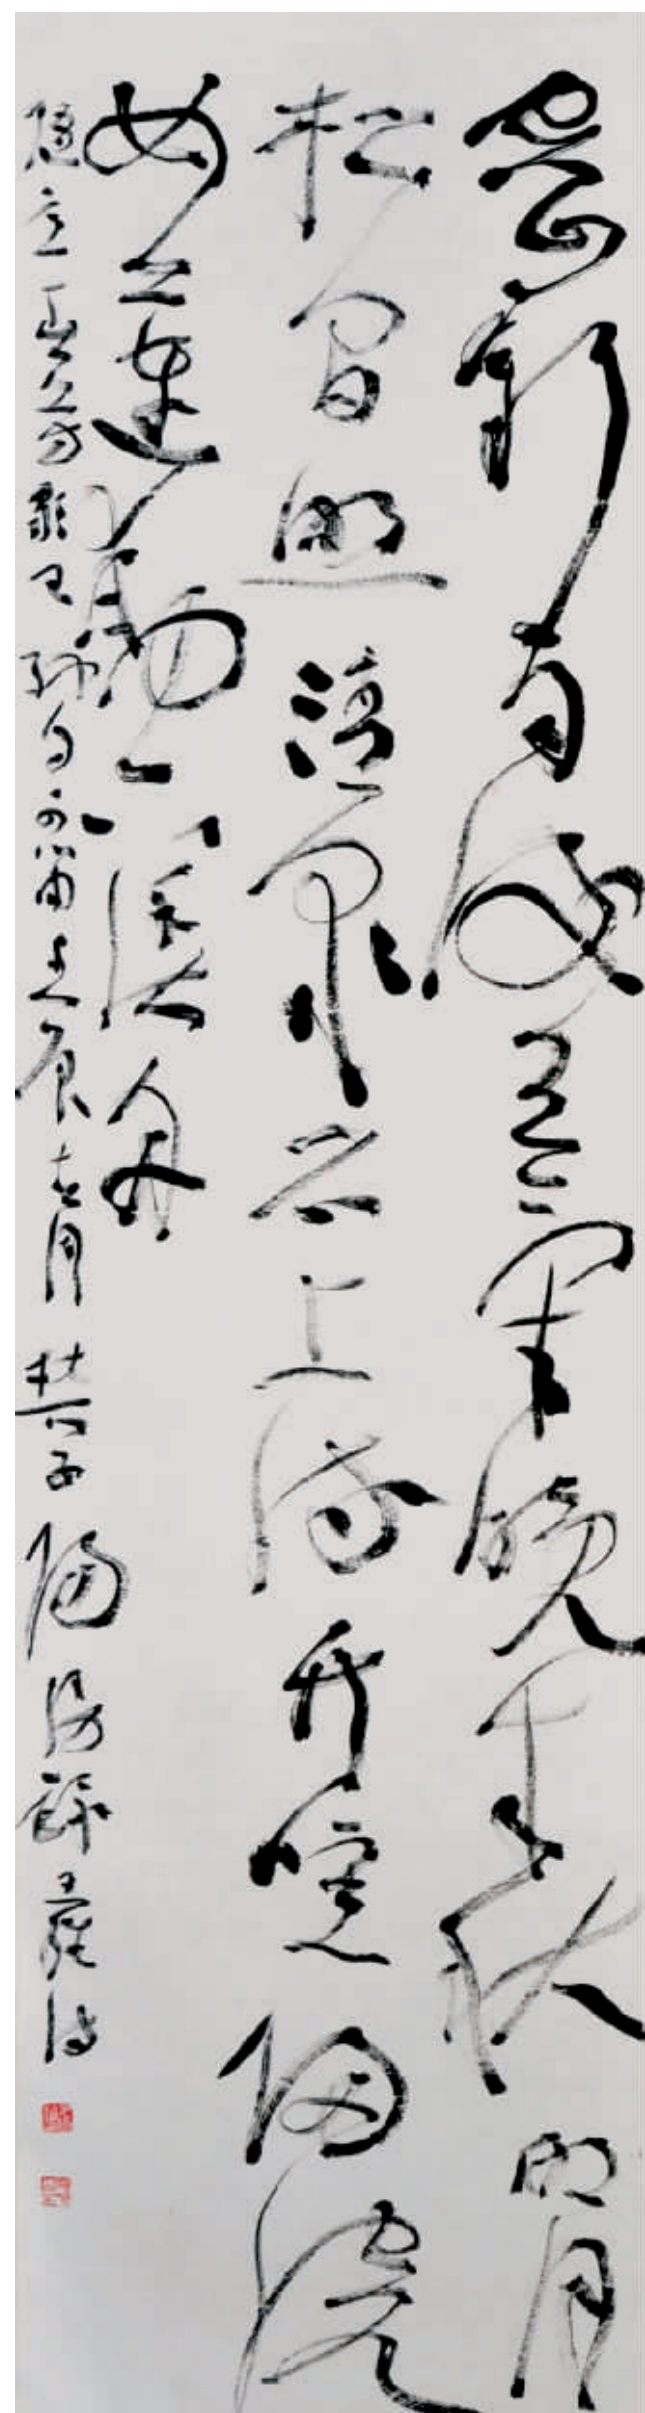 空山新雨後天氣晚來秋明月
松間照清泉石上流竹喧歸浣
女蓮動下漁舟
隨意春芳歇王孫自可留